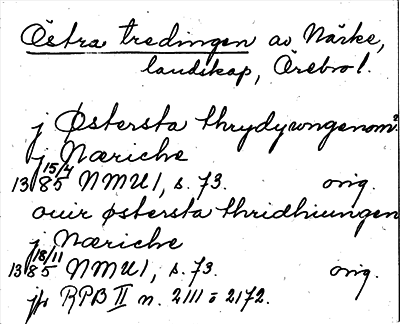 Östra tredingen av Närke,
landskap, Örebro l.
j Østersta thrydywngenom
j Næriche
1385 15/4 NMU1, s. 73. orig.
ouir østersta thridhiungen
j Næriche
1385 18/11 NMU1, s. 73. orig.
jfr RPB II n. 2111 o 2172.